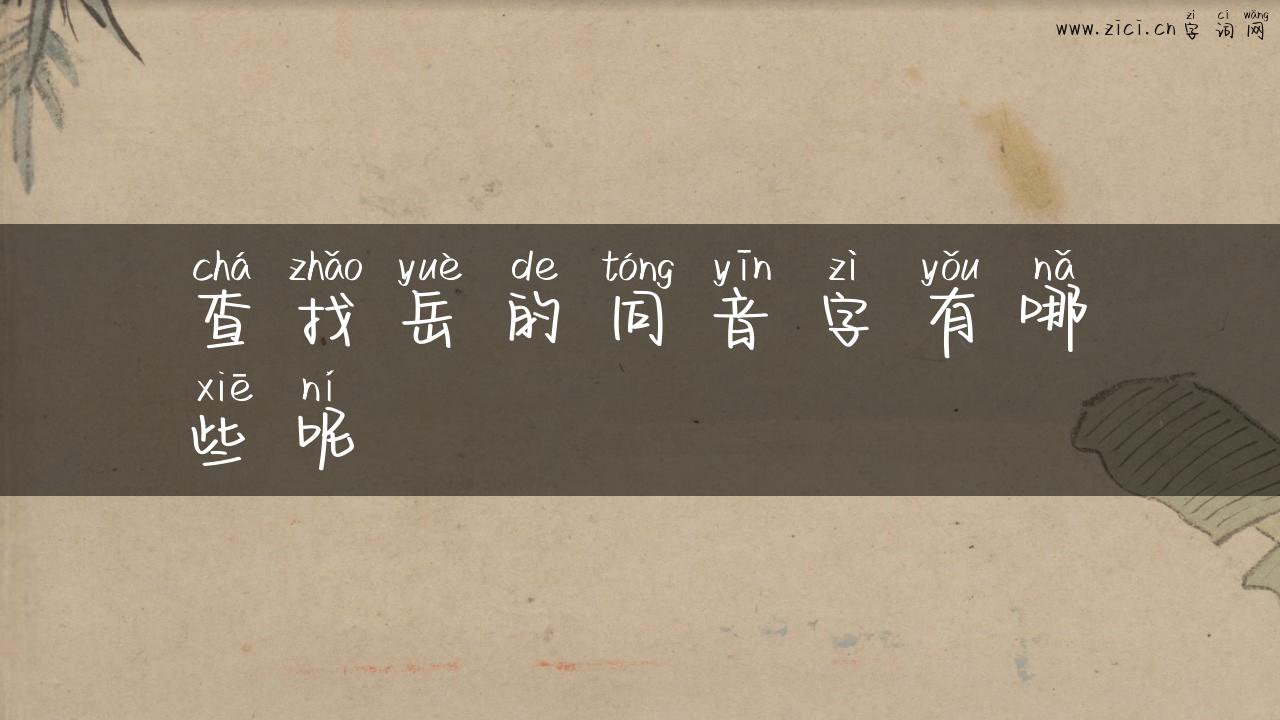 zì cí wǎng
www.zici.cn 字 词 网
chá zhǎo yuè de tóng yīn zì yǒu nǎ
查 找 岳 的 同 音 字 有 哪
xiē ní
些 呢